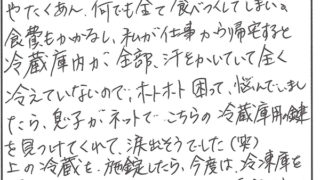 やたくあん、何でも全て食べつくしてしまい。
食費もかかるし、私が仕事から帰宅すると
冷蔵庫内が全部、汗をかいていて全く
冷えていないので、ホトホト困って、悩んでいまし
たら、息子がネットで、こちらの冷蔵庫用の鍵
を見つけてくれて、涙出そうでした(笑)
上の冷蔵を、施錠したら、今度は、冷凍庫を